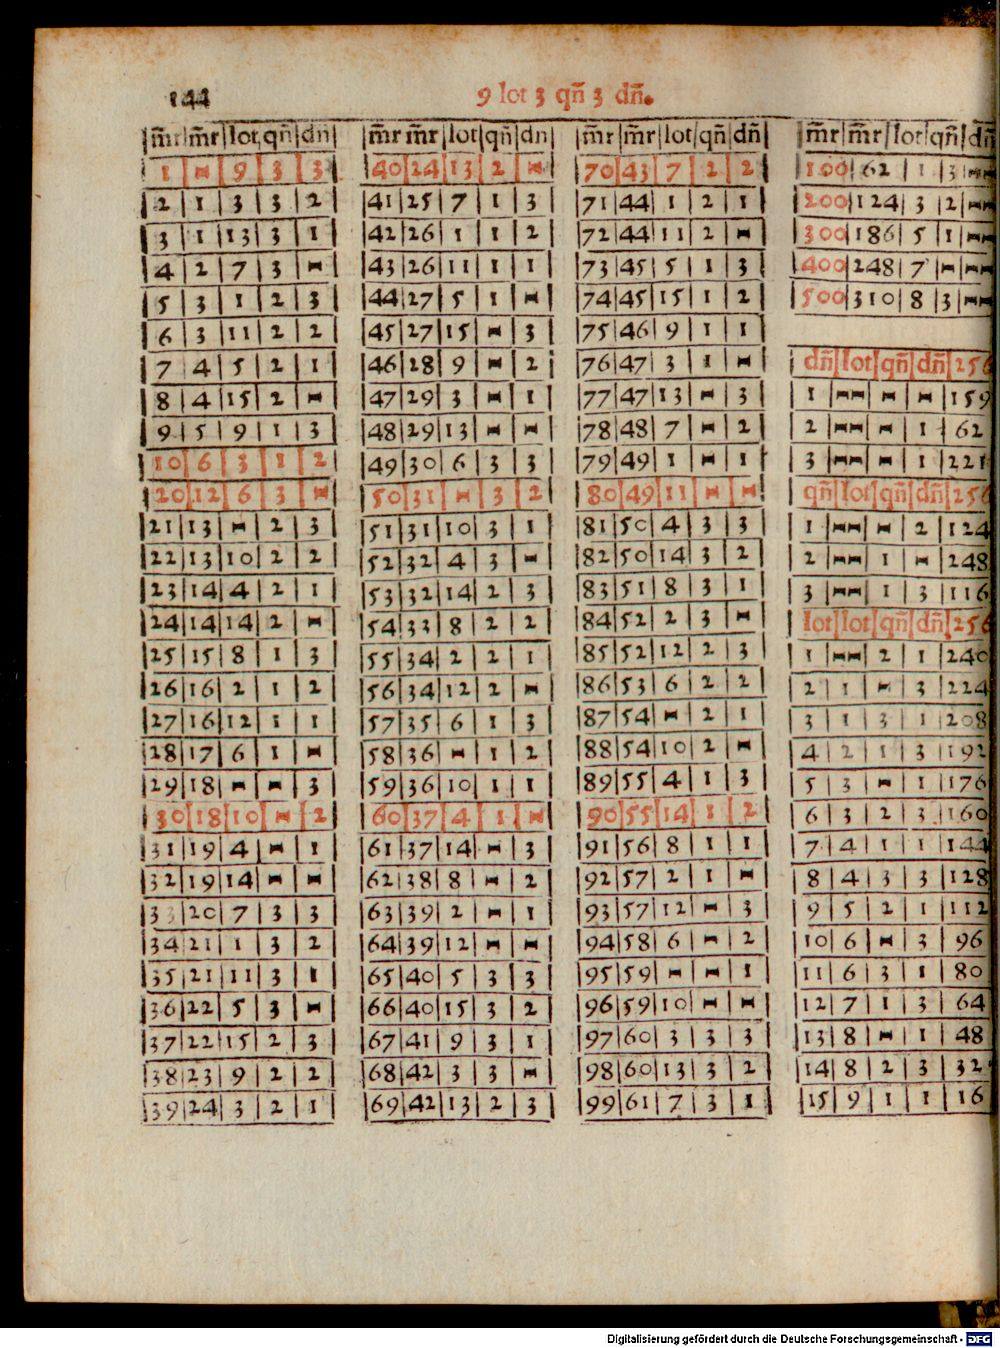 144
9 lot 3 qñ 3 dñ.
m̃r|m̃r|lot|qñ|dñ
1|-|9|3|3
2|1|3|3|2
3|1|13|3|1
4|2|7|3|-
5|3|1|2|3
6|3|11|2|2
7|4|5|2|1
8|4|15|2|-
9|5|9|1|3
10|6|3|1|2
20|12|6|3|-
21|13|-|2|3
22|13|10|2|2
23|14|4|2|1
24|14|14|2|-
25|15|8|1|3
26|16|2|1|2
27|16|12|1|1
28|17|6|1|-
29|18|-|-|3
30|18|10|-|2
31|19|4|-|1
32|19|14|-|-
33|20|7|3|3
34|21|1|3|2
35|21|11|3|1
36|22|5|3|-
37|22|15|2|3
38|23|9|2|2
39|24|3|2|1
m̃r m̃r|lot|qñ|dn
40|24|13|2|-
41|25|7|1|3
42|26|1|1|2
43|26|11|1|1
44|27|5|1|-
45|27|15|-|3
46|28|9|-|2
47|29|3|-|1
48|29|13|-|-
49|30|6|3|3
50|31|-|3|2
51|31|10|3|1
52|32|4|3|-
53|32|14|2|3
54|33|8|2|2
55|34|2|2|1
56|34|12|2|-
57|35|6|1|3
58|36|-|1|2
59|36|10|1|1
60|37|4|1|-
61|37|14|-|3
62|38|8|-|2
63|39|2|-|1
64|39|12|-|-
65|40|5|3|3
66|40|15|3|2
67|41|9|3|1
68|42|3|3|-
69|42|13|2|3
m̃r|m̃r|lot|qñ|dñ
70|43|7|2|2
71|44|1|2|1
72|44|11|2|-
73|45|5|1|3
74|45|15|1|2
75|46|9|1|1
76|47|3|1|-
77|47|13|-|3
78|48|7|-|2
79|49|1|-|1
80|49|11|-|-
81|50|4|3|3
82|50|14|3|2
83|51|8|3|1
84|52|2|3|-
85|52|12|2|3
86|53|6|2|2
87|54|-|2|1
88|54|10|2|-
89|55|4|1|3
90|55|14|1|2
91|56|8|1|1
92|57|2|1|-
93|57|12|-|3
94|58|6|-|2
95|59|-|-|1
96|59|10|-|-
97|60|3|3|3
98|60|13|3|2
99|61|7|3|1
m̃r|m̃r|lot|qñ|dñ
100|62|1|3|--
200|124|3|2|--
300|186|5|1|--
400|248|7|-|--
500|310|8|3|--
dñ|lot|qñ|dñ|256
1|--|-|-|159
2|--|-|1|62
3|--|-|1|221
qñ|lot|qñ|dñ|256
1|--|-|2|124
2|--|1|-|248
3|--|1|3|116
lot|lot|qñ|dñ|256
1|--|2|1|240
2|1|-|3|224
3|1|3|1|208
4|2|1|3|192
5|3|-|1|176
6|3|2|3|160
7|4|1|1|144
8|4|3|3|128
9|5|2|1|112
10|6|-|3|96
11|6|3|1|80
12|7|1|3|64
13|8|-|1|48
14|8|2|3|32
15|9|1|1|16
Digitalisierung gefördert durch die Deutsche Forschungsgemeinschaft - DFG